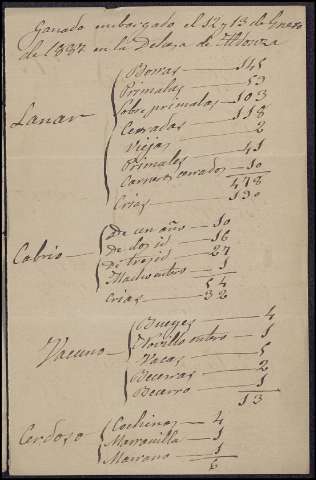 Ganado embargado el 12 y 13 de Enero
de 1837 en la Dehesa de
Lanar
Borras 145
Primalas 59
Sobreprimalas 103
Cerradas 118
Viejas 2
Primales 41
Carneros cerrados 10
478
Crias 130
Cabrio
De un año 10
De dos id 16
De tres id 27
Macho entero 1
54
Crias 32
Vacuno
Bueyes 4
Novillo entero 1
Vacas 5
Becerras 2
Becerro 1
13
Cerdoso
Cochinos 4
Marranilla 1
Marrano 1
6